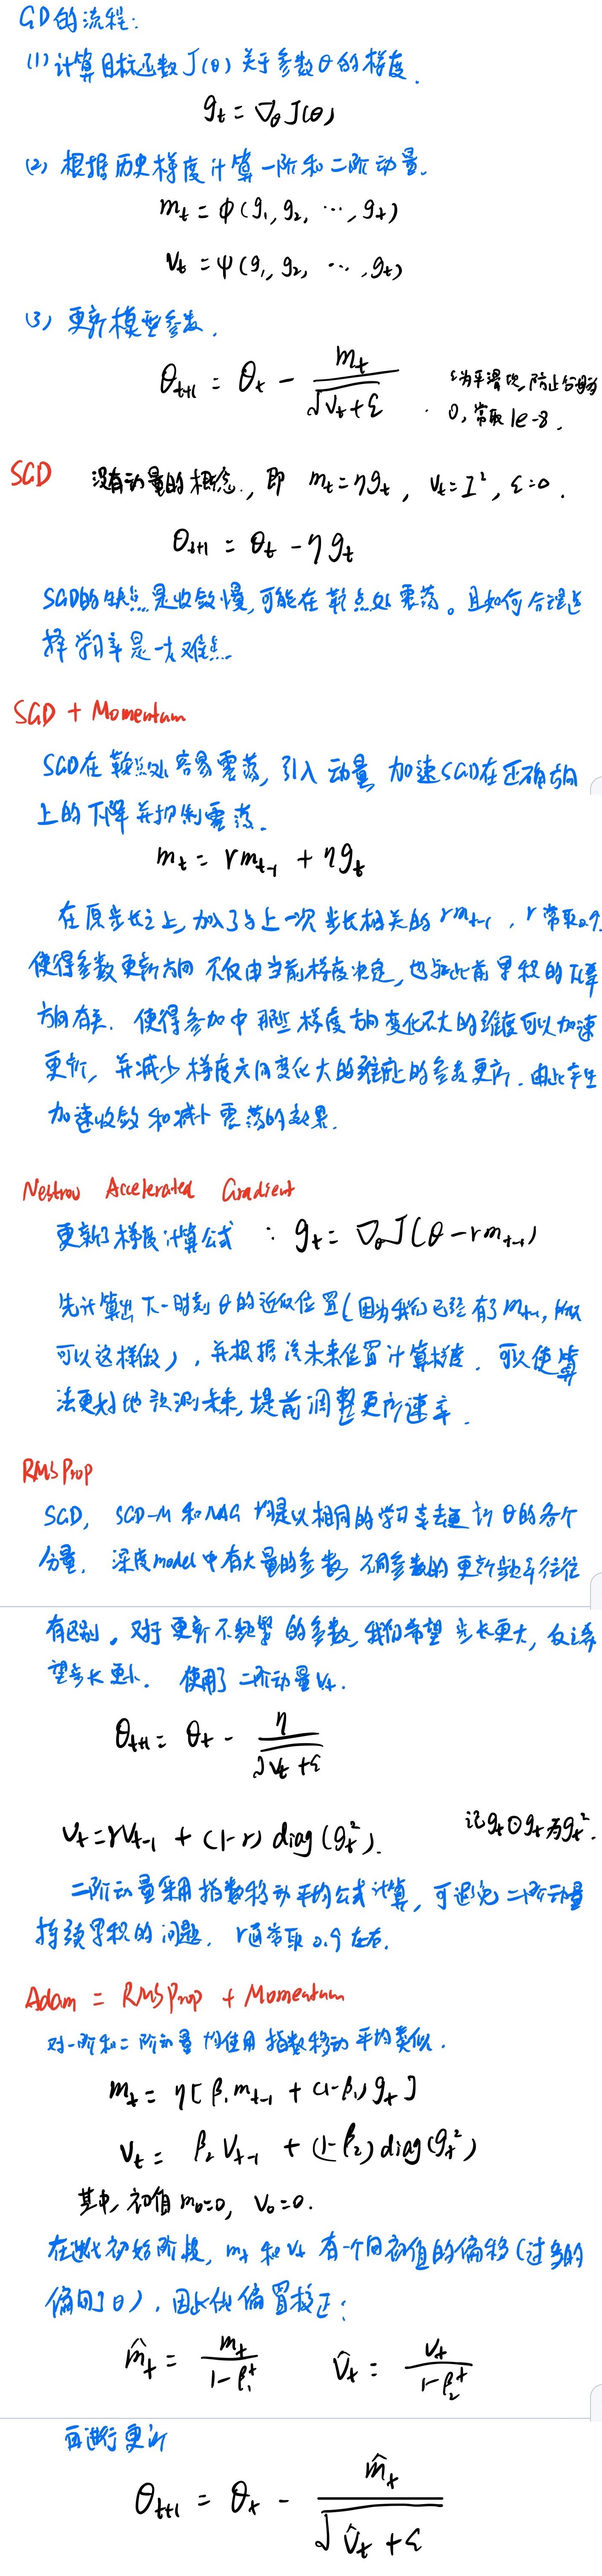 GD的流程:
(1) 计算目标函数J(θ)关于参数θ的梯度.
g_t = ∇_θ J(θ)
(2) 根据历史梯度计算一阶和二阶动量.
m_t = φ(g_1, g_2, ⋯, g_t)
v_t = ψ(g_1, g_2, ⋯, g_t)
(3) 更新模型参数.
θ_{t+1} = θ_t - m_t / √(v_t + ε) . ε为平滑项,防止分母为
0, 常取 1e-8.
SGD 没有动量的概念, 即 m_t = ηg_t, v_t = I², ε = 0.
θ_{t+1} = θ_t - ηg_t
SGD的缺点是收敛慢,可能在鞍点处震荡。且如何合理选
择学习率是一大难点
SGD + Momentum
SGD在鞍点处容易震荡, 引入动量 加速SGD在正确方向
上的下降并抑制震荡.
m_t = rm_{t-1} + ηg_t
在原步长之上,加入了与上一次步长相关的rm_{t-1}, r常取0.9
使得参数更新方向不仅由当前梯度决定,也与此前累积的下降
方向有关. 使得参加中那些梯度方向变化不大的维度可以加速
更新, 并减少梯度方向变化大的维度的参数更新. 由此产生
加速收敛和减小震荡的效果.
Nestrov Accelerated Gradient
更新了梯度计算公式 : g_t = ∇_θ J(θ - rm_{t-1})
先计算出下一时刻θ的近似位置(因为我们已经有了m_{t-1}, 所以
可以这样做), 并根据该未来位置计算梯度. 可以使算
法更好地预测未来, 提前调整更新速率.
RMSProp
SGD, SGD-M和NAG均是以相同的学习率去更新θ的各个
分量. 深度model中有大量的参数, 不同参数的更新频率往往
有区别。对于更新不频繁的参数,我们希望步长更大, 反之希
望步长更小. 使用了二阶动量v_t.
θ_{t+1} = θ_t - η / √(v_t + ε)
v_t = rv_{t-1} + (1-r) diag(g_t²). 记g_t⊙g_t为g_t².
二阶动量采用指数移动平均公式计算, 可避免二阶动量
持续累积的问题. r通常取0.9左右.
Adam = RMSProp + Momentum
对一阶和二阶动量均使用指数移动平均类似.
m_t = η[β_1 m_{t-1} + (1-β_1) g_t]
v_t = β_2 v_{t-1} + (1-β_2) diag(g_t²)
其中, 初值 m_0=0, v_0=0.
在迭代初始阶段, m_t和v_t有一个向初值的偏移(过多的
偏向了0). 因此做偏置校正:
m̂_t = m_t / (1-β_1^t) v̂_t = v_t / (1-β_2^t)
再进行更新
θ_{t+1} = θ_t - m̂_t / √(v̂_t + ε)